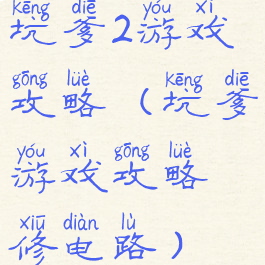 kēng diē yóu xì
坑爹2游戏
gōng lüè kēng diē
攻略（坑爹
yóu xì gōng lüè
游戏攻略
xiū diàn lù
修电路）